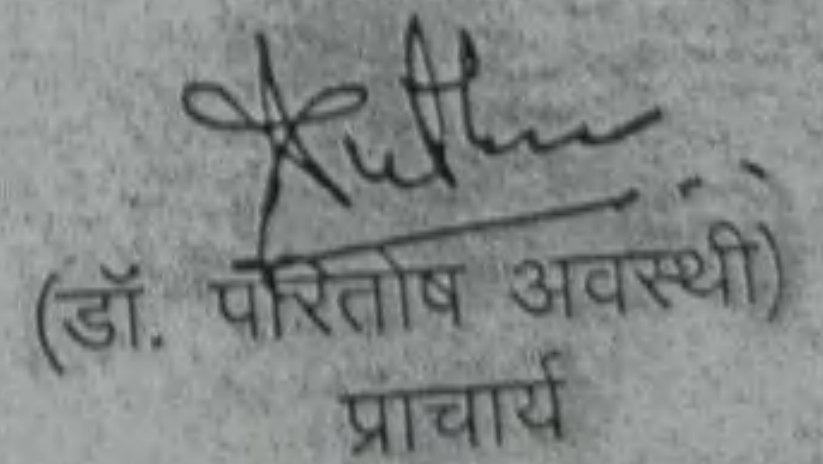 (डॉ. परितोष अवस्थी)
प्राचार्य